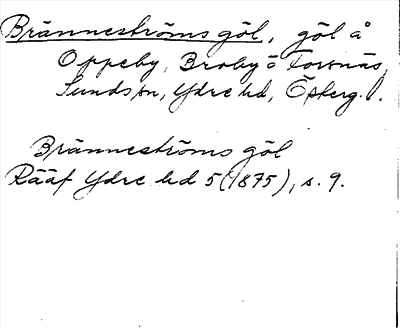 Bränneströms göl, göl å
Oppeby, Broby o Torsnäs,
Sunds sn, Ydre hd, Österg. l.
Bränneströms göl
Rääf Ydre hd 5 (1875), s. 9.